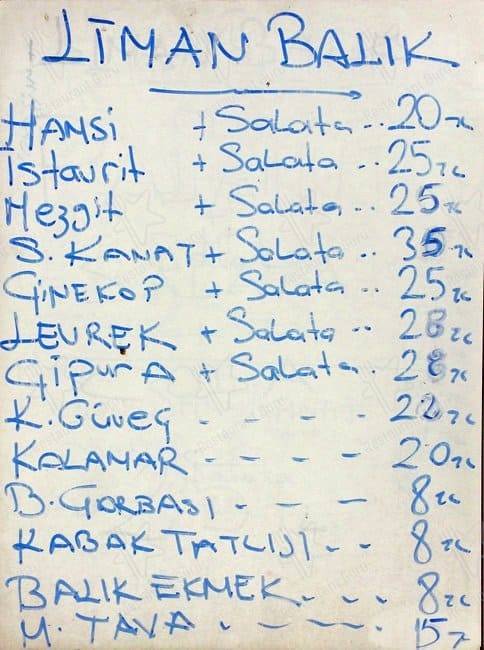 LİMAN BALIK
HAMSİ + Salata .. 20 TL
İstavrit + Salata .. 25 TL
Mezgit + Salata .. 25 TL
S. KANAT + Salata .. 35 TL
ÇİNEKOP + Salata .. 25 TL
LEVREK + Salata .. 28 TL
ÇİPURA + Salata . 28 TL
K. Güveç - - - - 22 TL
KALAMAR - - - - 20 TL
B. ÇORBASI - - - 8 TL
KABAK TATLISI - - 8 TL
BALIK EKMEK . . . 8 TL
M. TAVA . - - . 15 TL